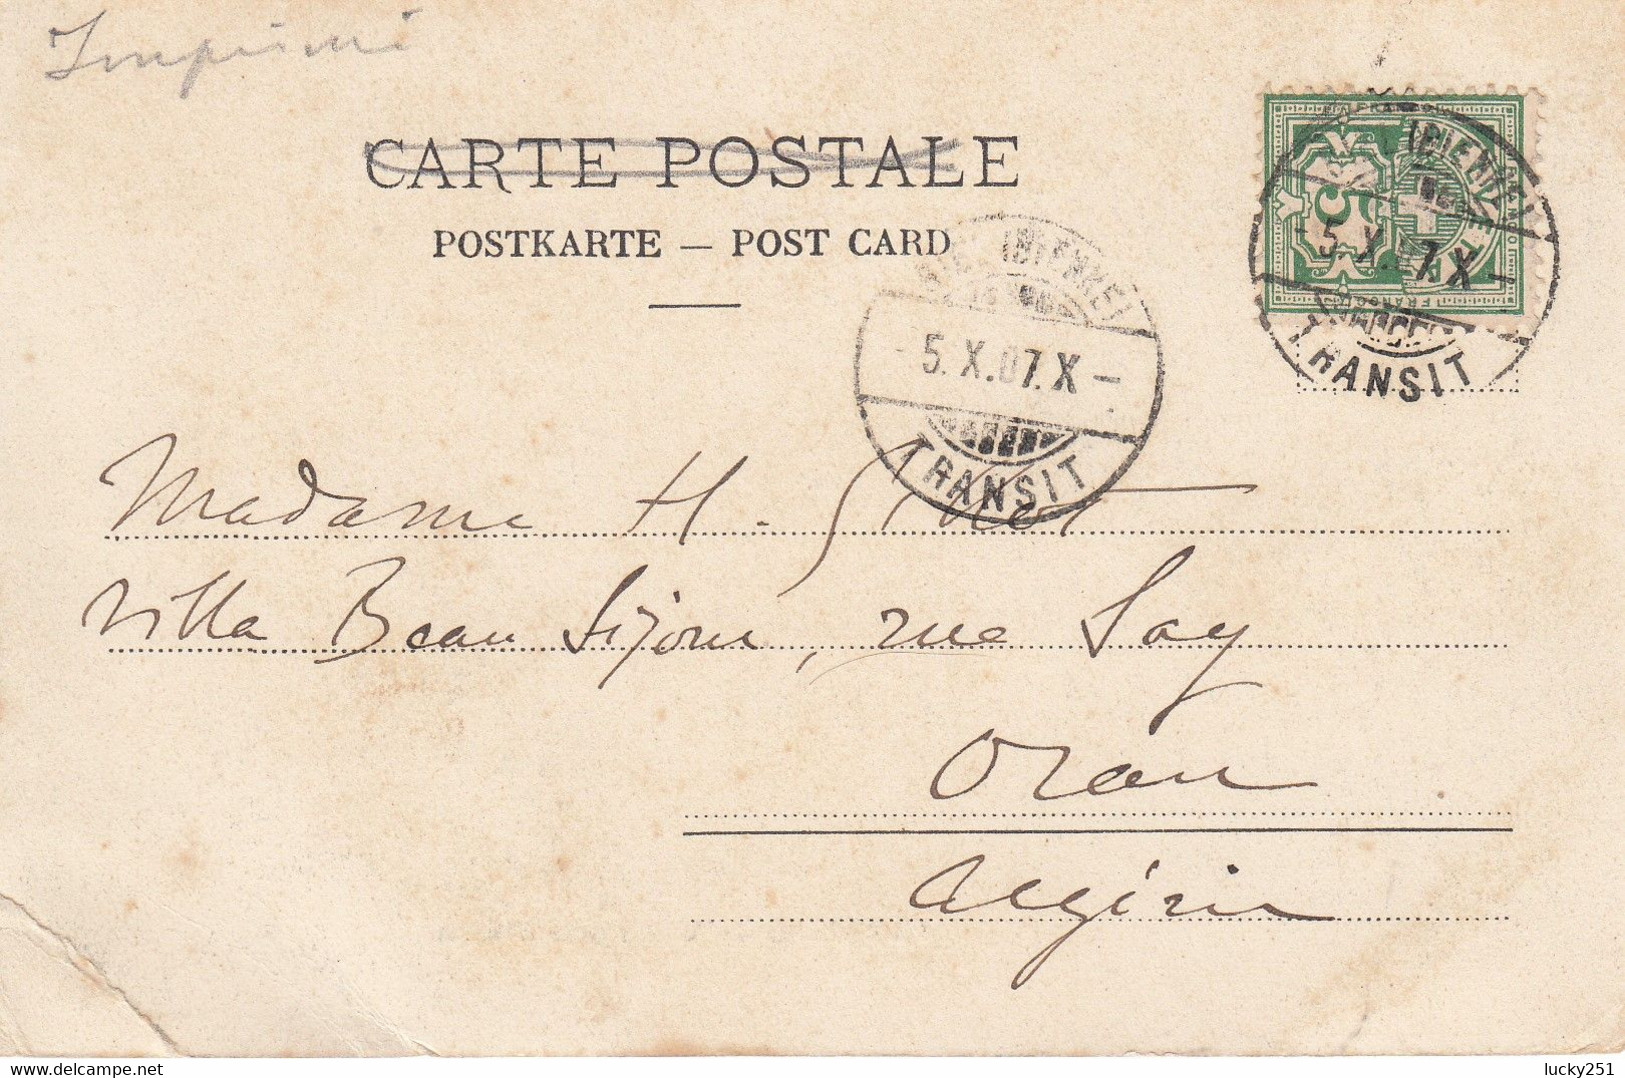 Imprimé
CARTE POSTALE
POSTKARTE — POST CARD
5
FRANCO
(BIENNE)
- 5. X. 07. X -
TRANSIT
(BIENNE)
- 5. X. 07. X -
TRANSIT
Madame H.
Villa Beau Séjour, rue Say
Oran
Algérie
lucky251